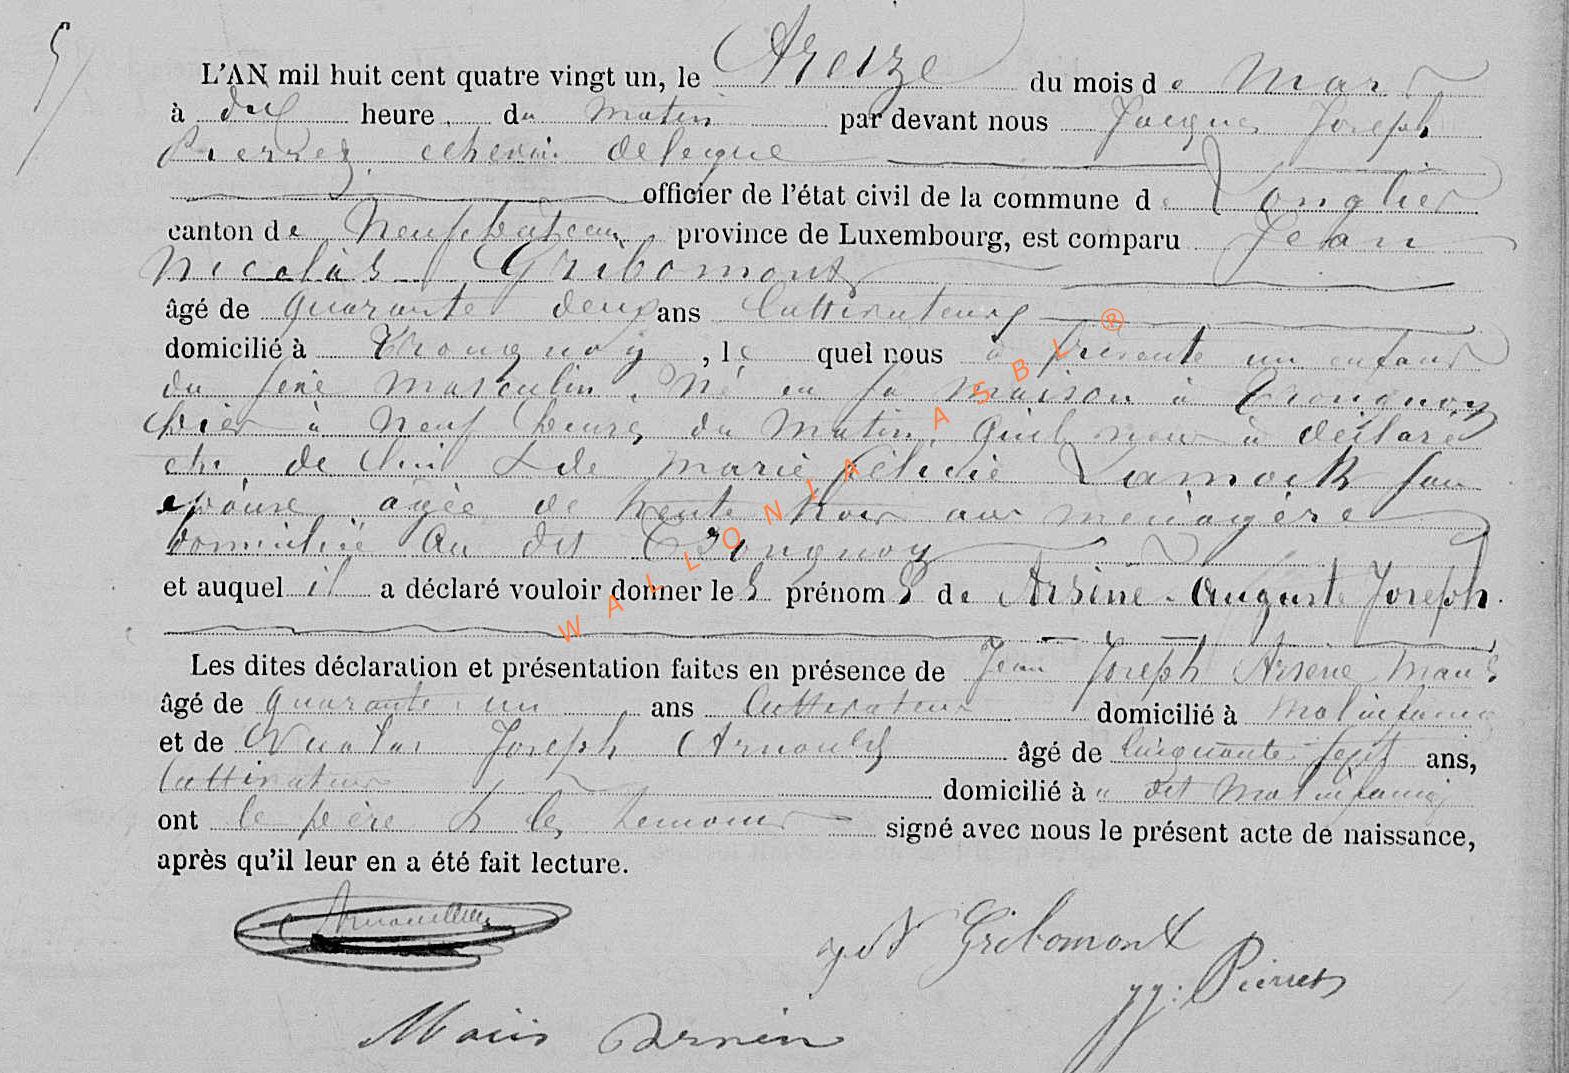 L'AN mil huit cent quatre vingt un, le Treize du mois de Mars
à dix heure du matin par devant nous Jacques Joseph
Pierret echevin delegué
officier de l'état civil de la commune de Longlier
canton de Neufchateau province de Luxembourg, est comparu Jean
Nicolas Gribomont
âgé de quarante deux ans Cultivateur
domicilié à Tronquoy, le quel nous a presenté un enfant
du sexe masculin. Né en sa maison à Tronquoy
hier à neuf heures du matin. qu'il nous à déclaré
être de lui & de marie félicie Lamock son
epouse agée de trente trois ans menagère
domiciliée au dit Tronquoy
et auquel il a déclaré vouloir donner les prénoms de Arsène Auguste Joseph.
Les dites déclaration et présentation faites en présence de Jean Joseph Arsene
âgé de quarante un ans Cultivateur domicilié à Molinfaing
et de Nicolas Joseph Arnould âgé de Cinquante sept ans,
Cultivateur domicilié à dit Molinfaing
ont le père & les temoins signé avec nous le présent acte de naissance,
après qu'il leur en a été fait lecture.
Gribomont
jj: Pierret
WALLONIA ASBL ®